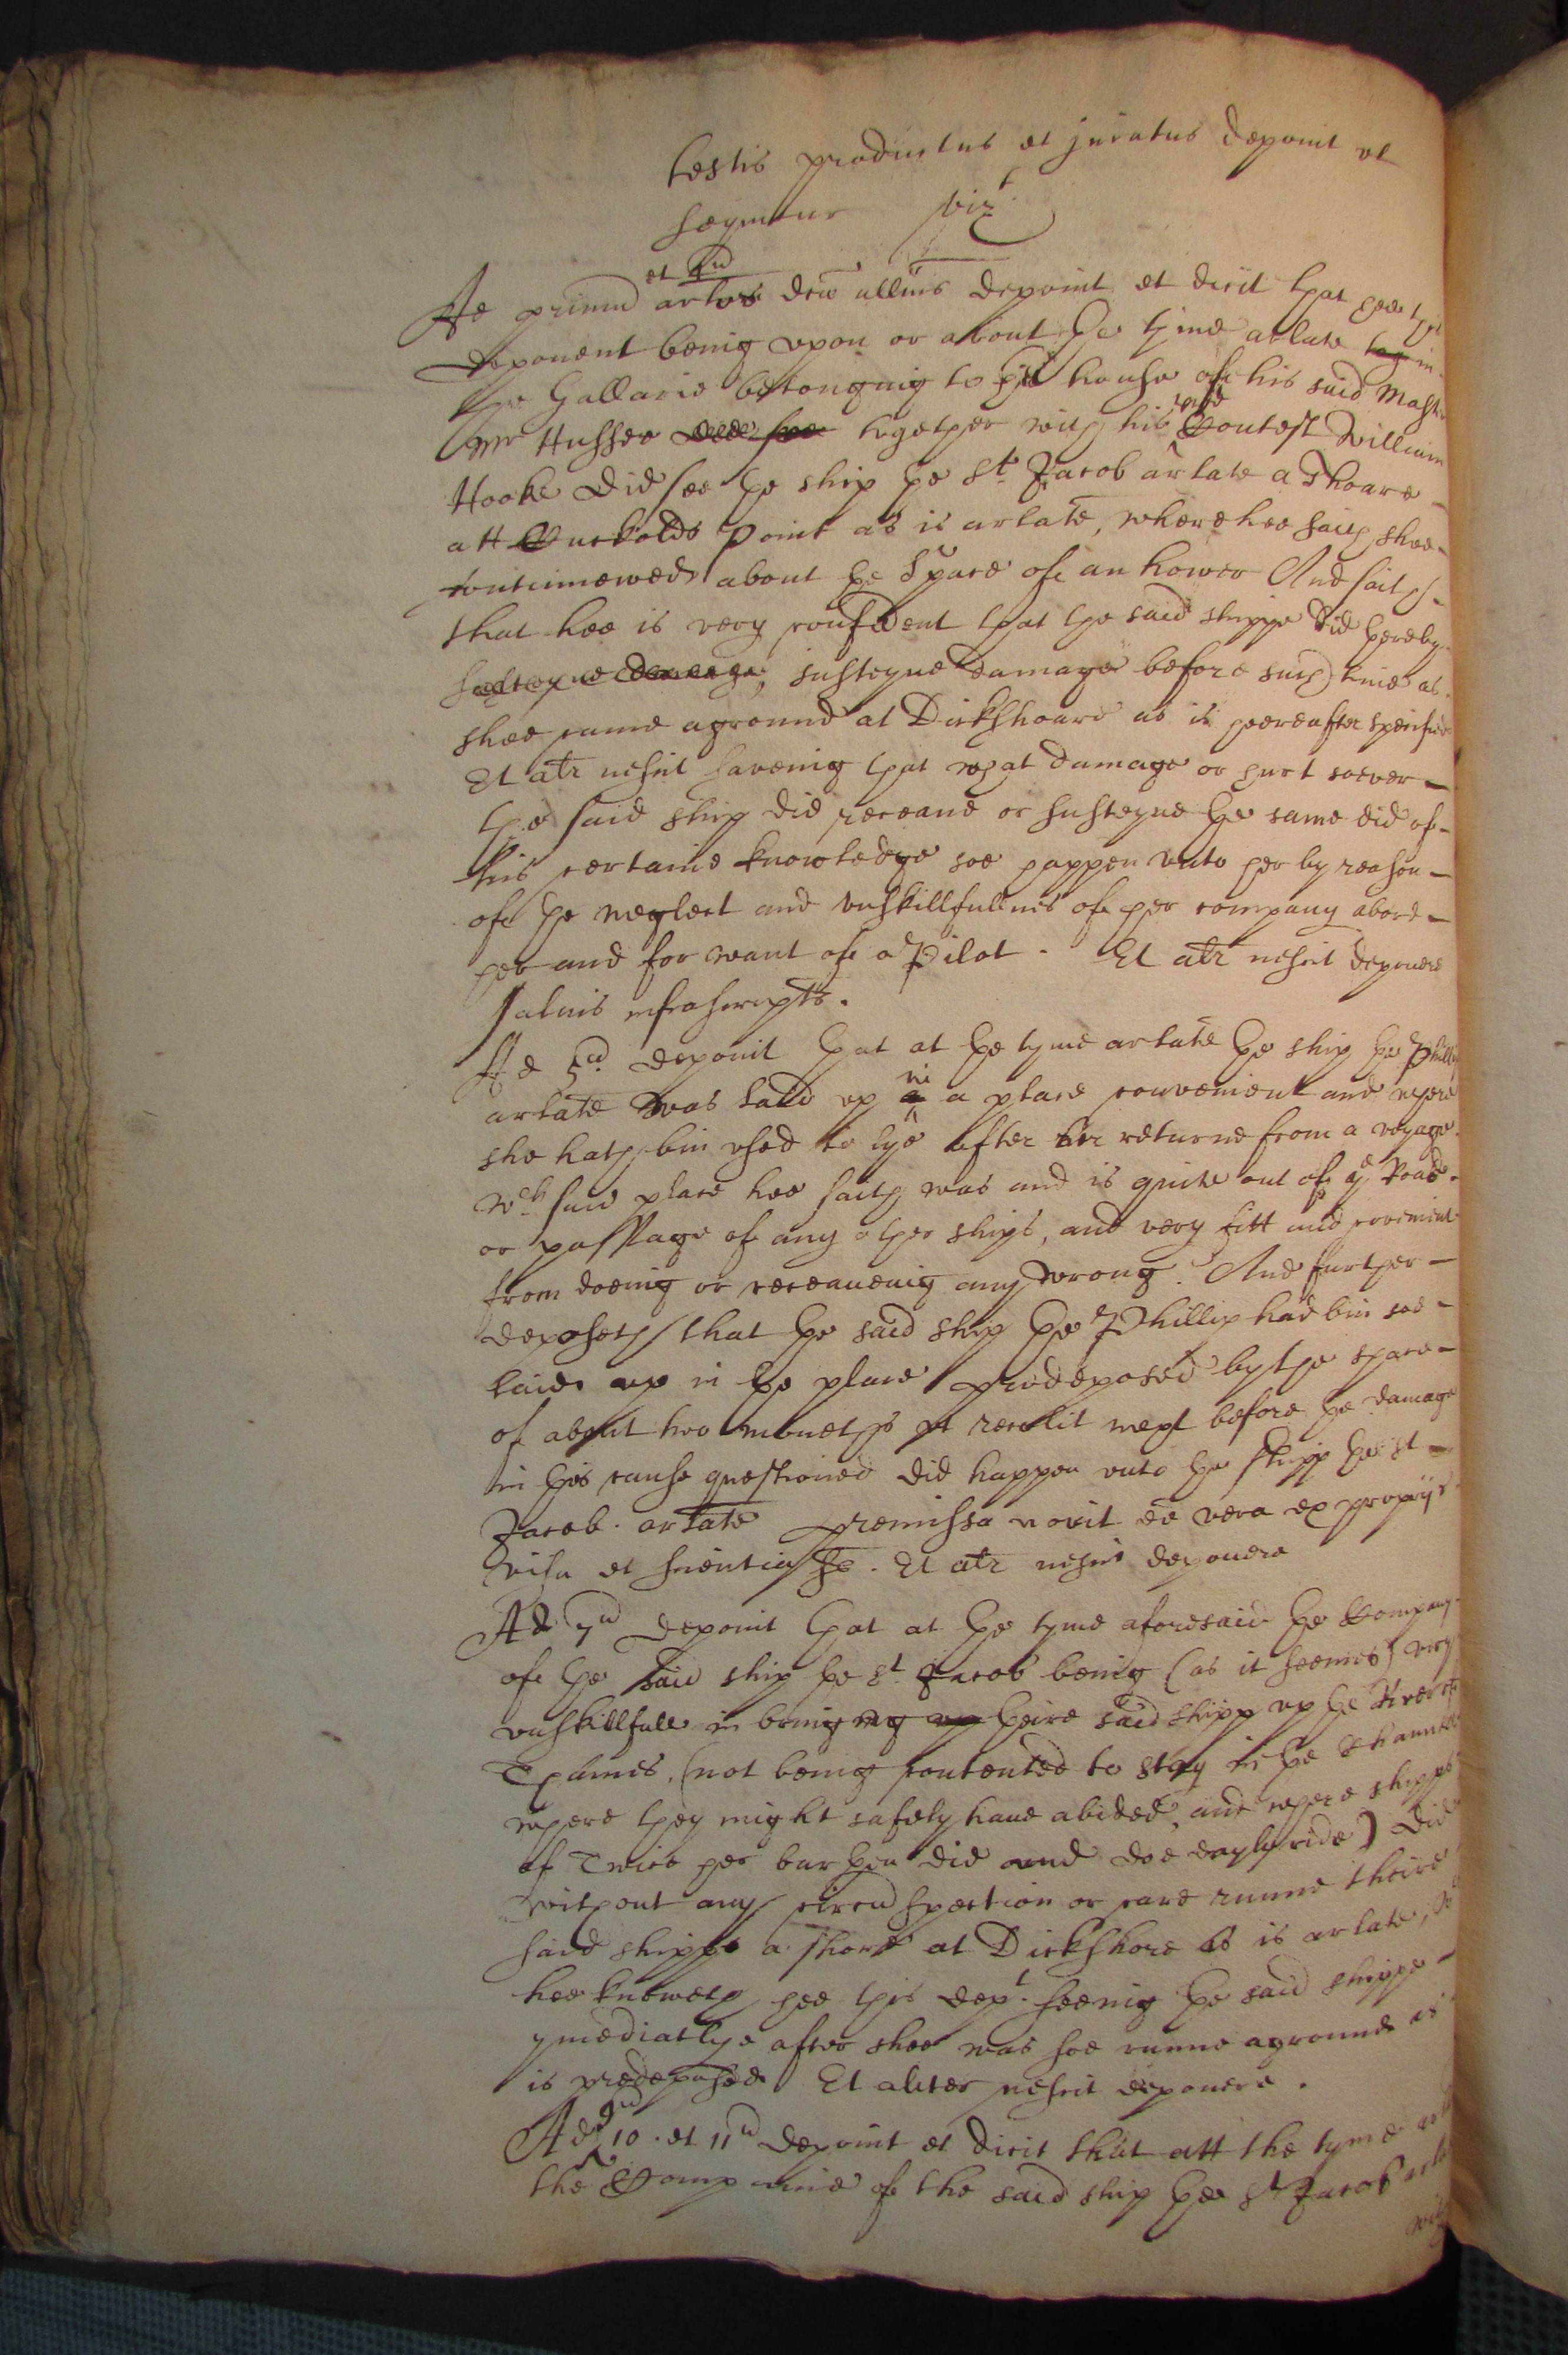 testis productus et juratus deponit vt
sequitur vizt.
Ad primu et 2u arlos dcu allnis deponit et dicit that hee this
deponent being vpon or about the tyme arlate in
the Gallarie belonging to the house of his said Master
Mr Hussee did see together with his pre Contest William
Hooke did see the ship the St. Jacob arlate a shoare
att Cuckolds point as is arlate, where hee saith shee
continnewed about the space of an hower And saith
that hee is very confident that the said shippe did thereby
susteyne damage, susteyne damage before such time as
shee came aground at Dickshoare as is heereafter specified
Et alr nescit saveing that what damage or hurt soever
the said ship did receaue or susteyne the same did of
this certaine knowledge soe happen vnto her by reason
of the neglect and vnskillfullnes of her company abord
her and for want of a Pilot. Et alr nescit deponere
saluis infrascriptis.
Ad 5u deponit that at the tyme arlate the ship the Phillip
arlate was laid vp in a place convenient and where
she hath bin vsed to lye after her returne from a voyage
wch said place hee saith was and is quite out of ye Road
or passage of any other ships, and very fitt and convenient
from doeing or receaueing any wrong. And further
deposeth that the said ship the Phillip had bin soe
laid vp in the place predeposed by the space
of about two moneths vt recolit next before the damage
in this cause questioned did happen vnto the shipp the St
Jacob arlate premissa novit ee vera ex proprijs
visu et scientia ss. Et alr nescit deponere
Ad 7u deponit that at the tyme aforesaid the Company
of the said ship the St Jacob being (as it seemes) very
vnskillfull in bringing vp theire said shipp vp the River of
Thames, (not being contented to stay in the Channell
where they might safely haue abided, and where shipps
of Twice her burthen did and doe dayly ride) did
without any circuspection or care runne theire
said shippe a shore at Dickshore as is arlate,
hee knoweth hee this dept. seeing the said shippe
ymediatlye after shee was soe runne aground as
is predeposed Et aliter nescit deponere.
Ad 9u 10 et 11u deponit et dicit that att the tyme
the Companie of the said ship the St Jacob arlate